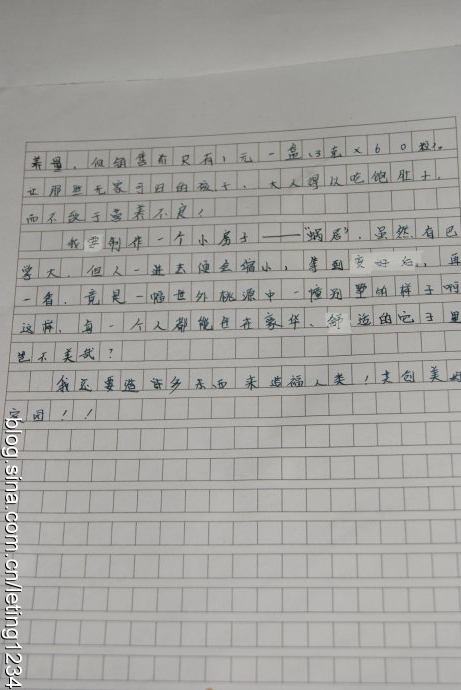 养量，但销售前只有1元一盒(3克×60数)。
让那些无家可归的孩子、大人得以吃饱肚子，
而不致于营养不良！
我要制作一个小房子——"蜗居"，虽然有巴
掌大，但人一进去便会缩小，等到变好后，再
一看，竟是一幅世外桃源中一幢别墅的样子啊
这样，每一个人都能住在豪华、舒适的屯子里
岂不美哉？
我还要造许多东西来造福人类！共创美好
家园！！
blog.sina.com.cn/leting1234